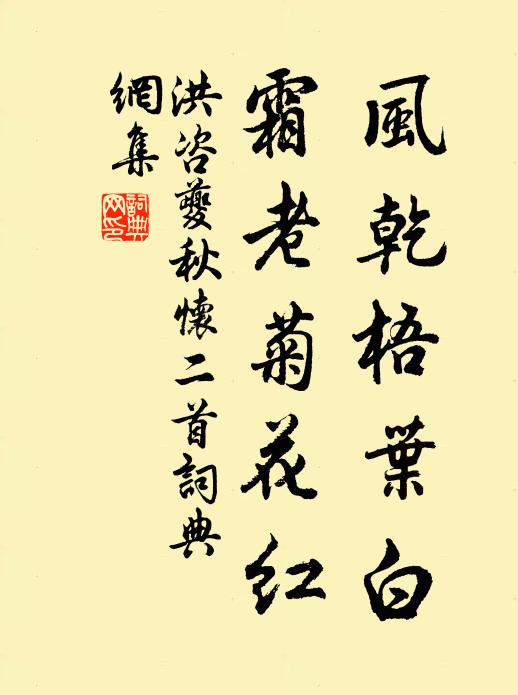 風乾梧葉白
霜老菊花紅
洪咨夔秋懷二首詞典
網集
詞典
网印